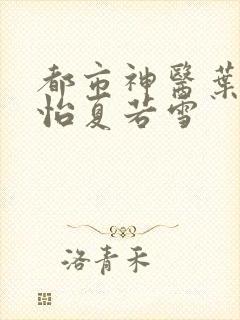 都市神醫葉
怡夏若雪
洛青禾